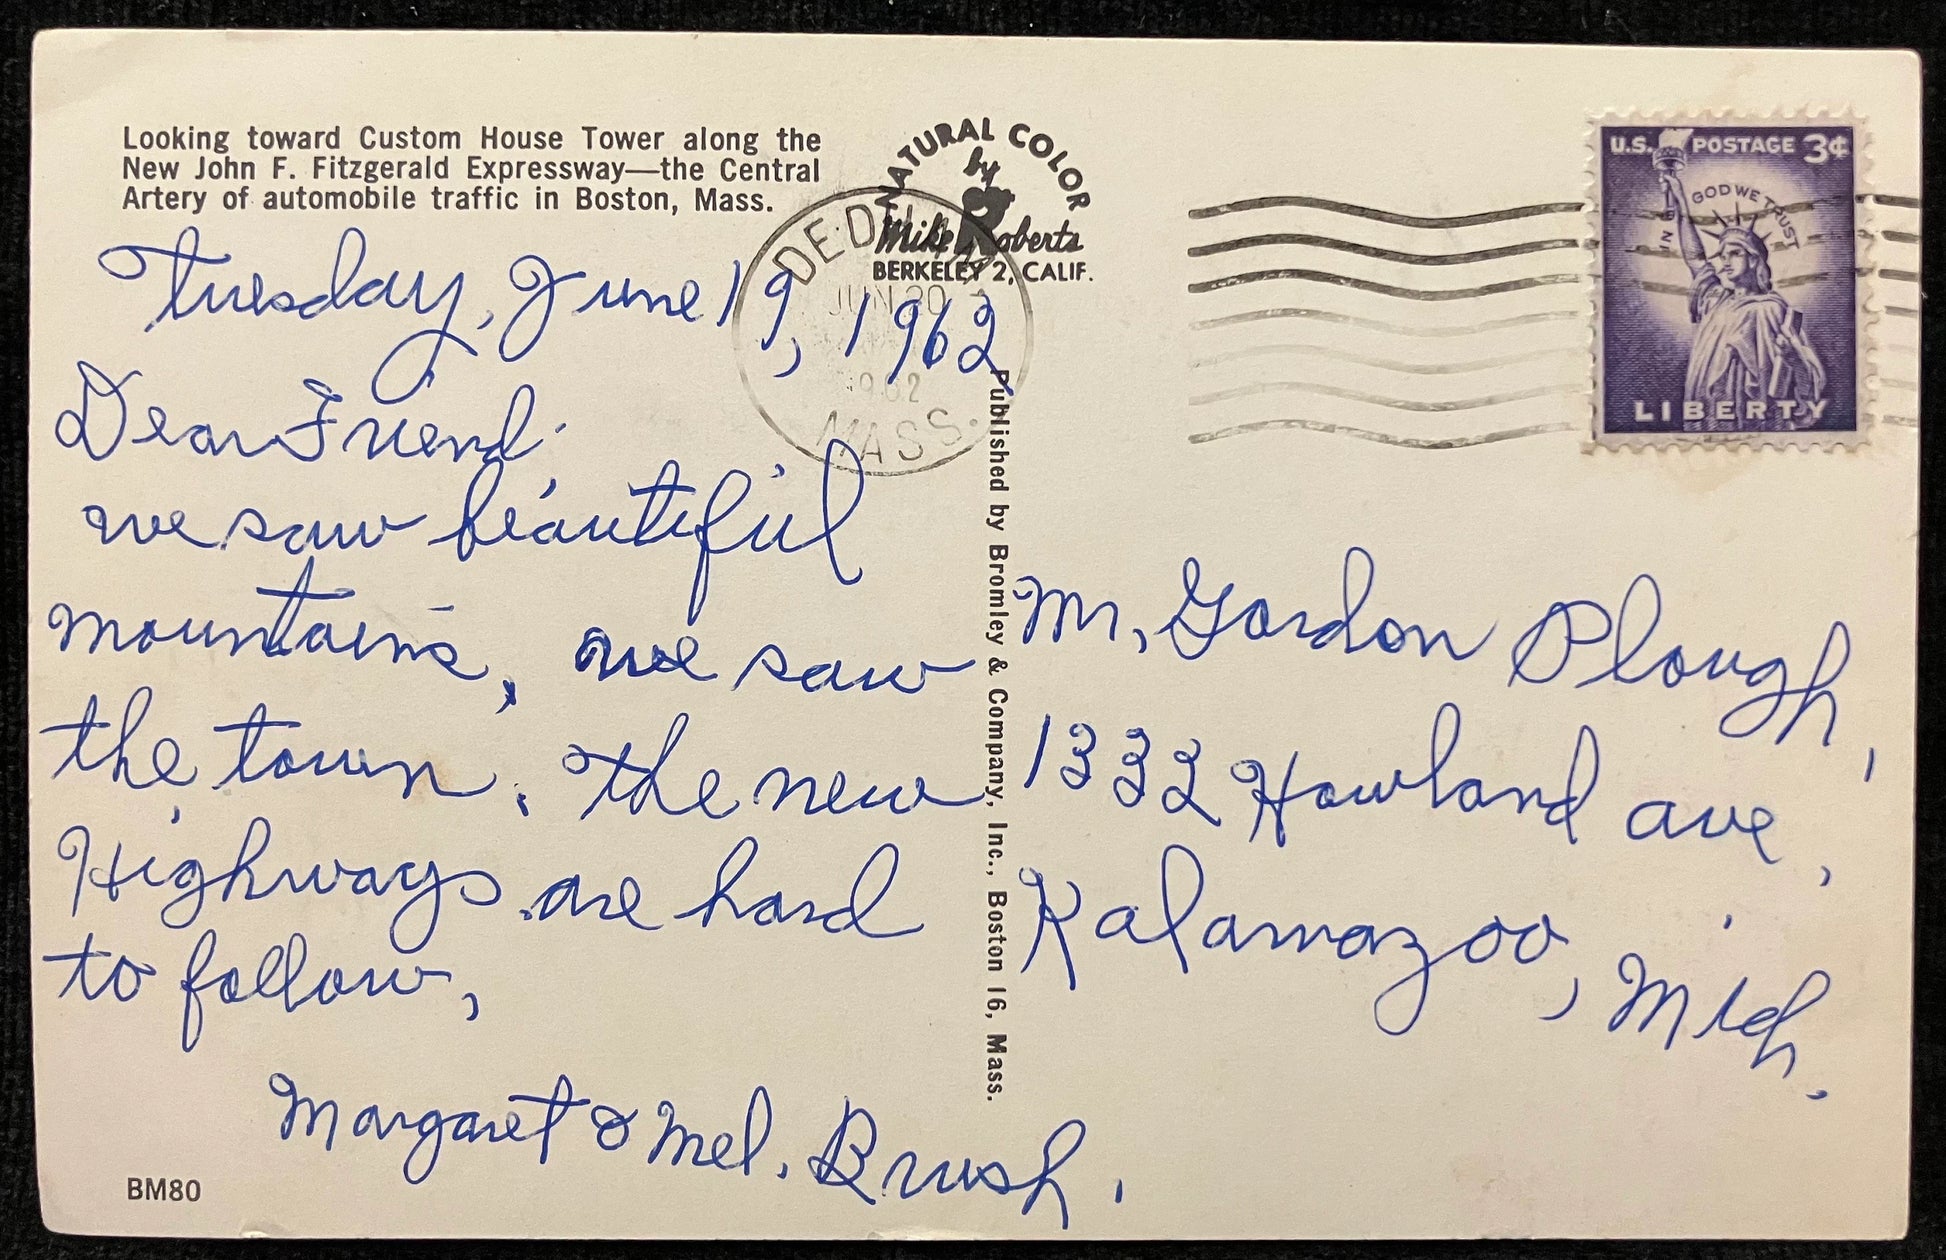 Looking toward Custom House Tower along the
New John F. Fitzgerald Expressway—the Central
Artery of automobile traffic in Boston, Mass.
NATURAL COLOR
by
Mike Roberts
BERKELEY 2, CALIF.
DEDHAM
JUN 20
1962
MASS.
U.S. POSTAGE 3¢
IN GOD WE TRUST
LIBERTY
Tuesday, June 19, 1962
Dear Friend.
we saw beautiful
mountains, we saw
the town. The new
Highways are hard
to follow,
Margaret & Mel. Brush.
Published by Bromley & Company, Inc., Boston 16, Mass.
Mr, Gordon Plough,
1332 Howland ave,
Kalamazoo, Mich.
BM80